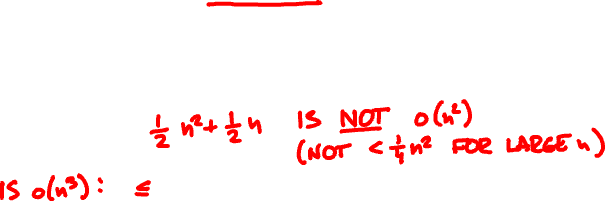 ½ n² + ½ n IS NOT o(n²)
(NOT < ¼ n² FOR LARGE n)
IS o(n³): ≤